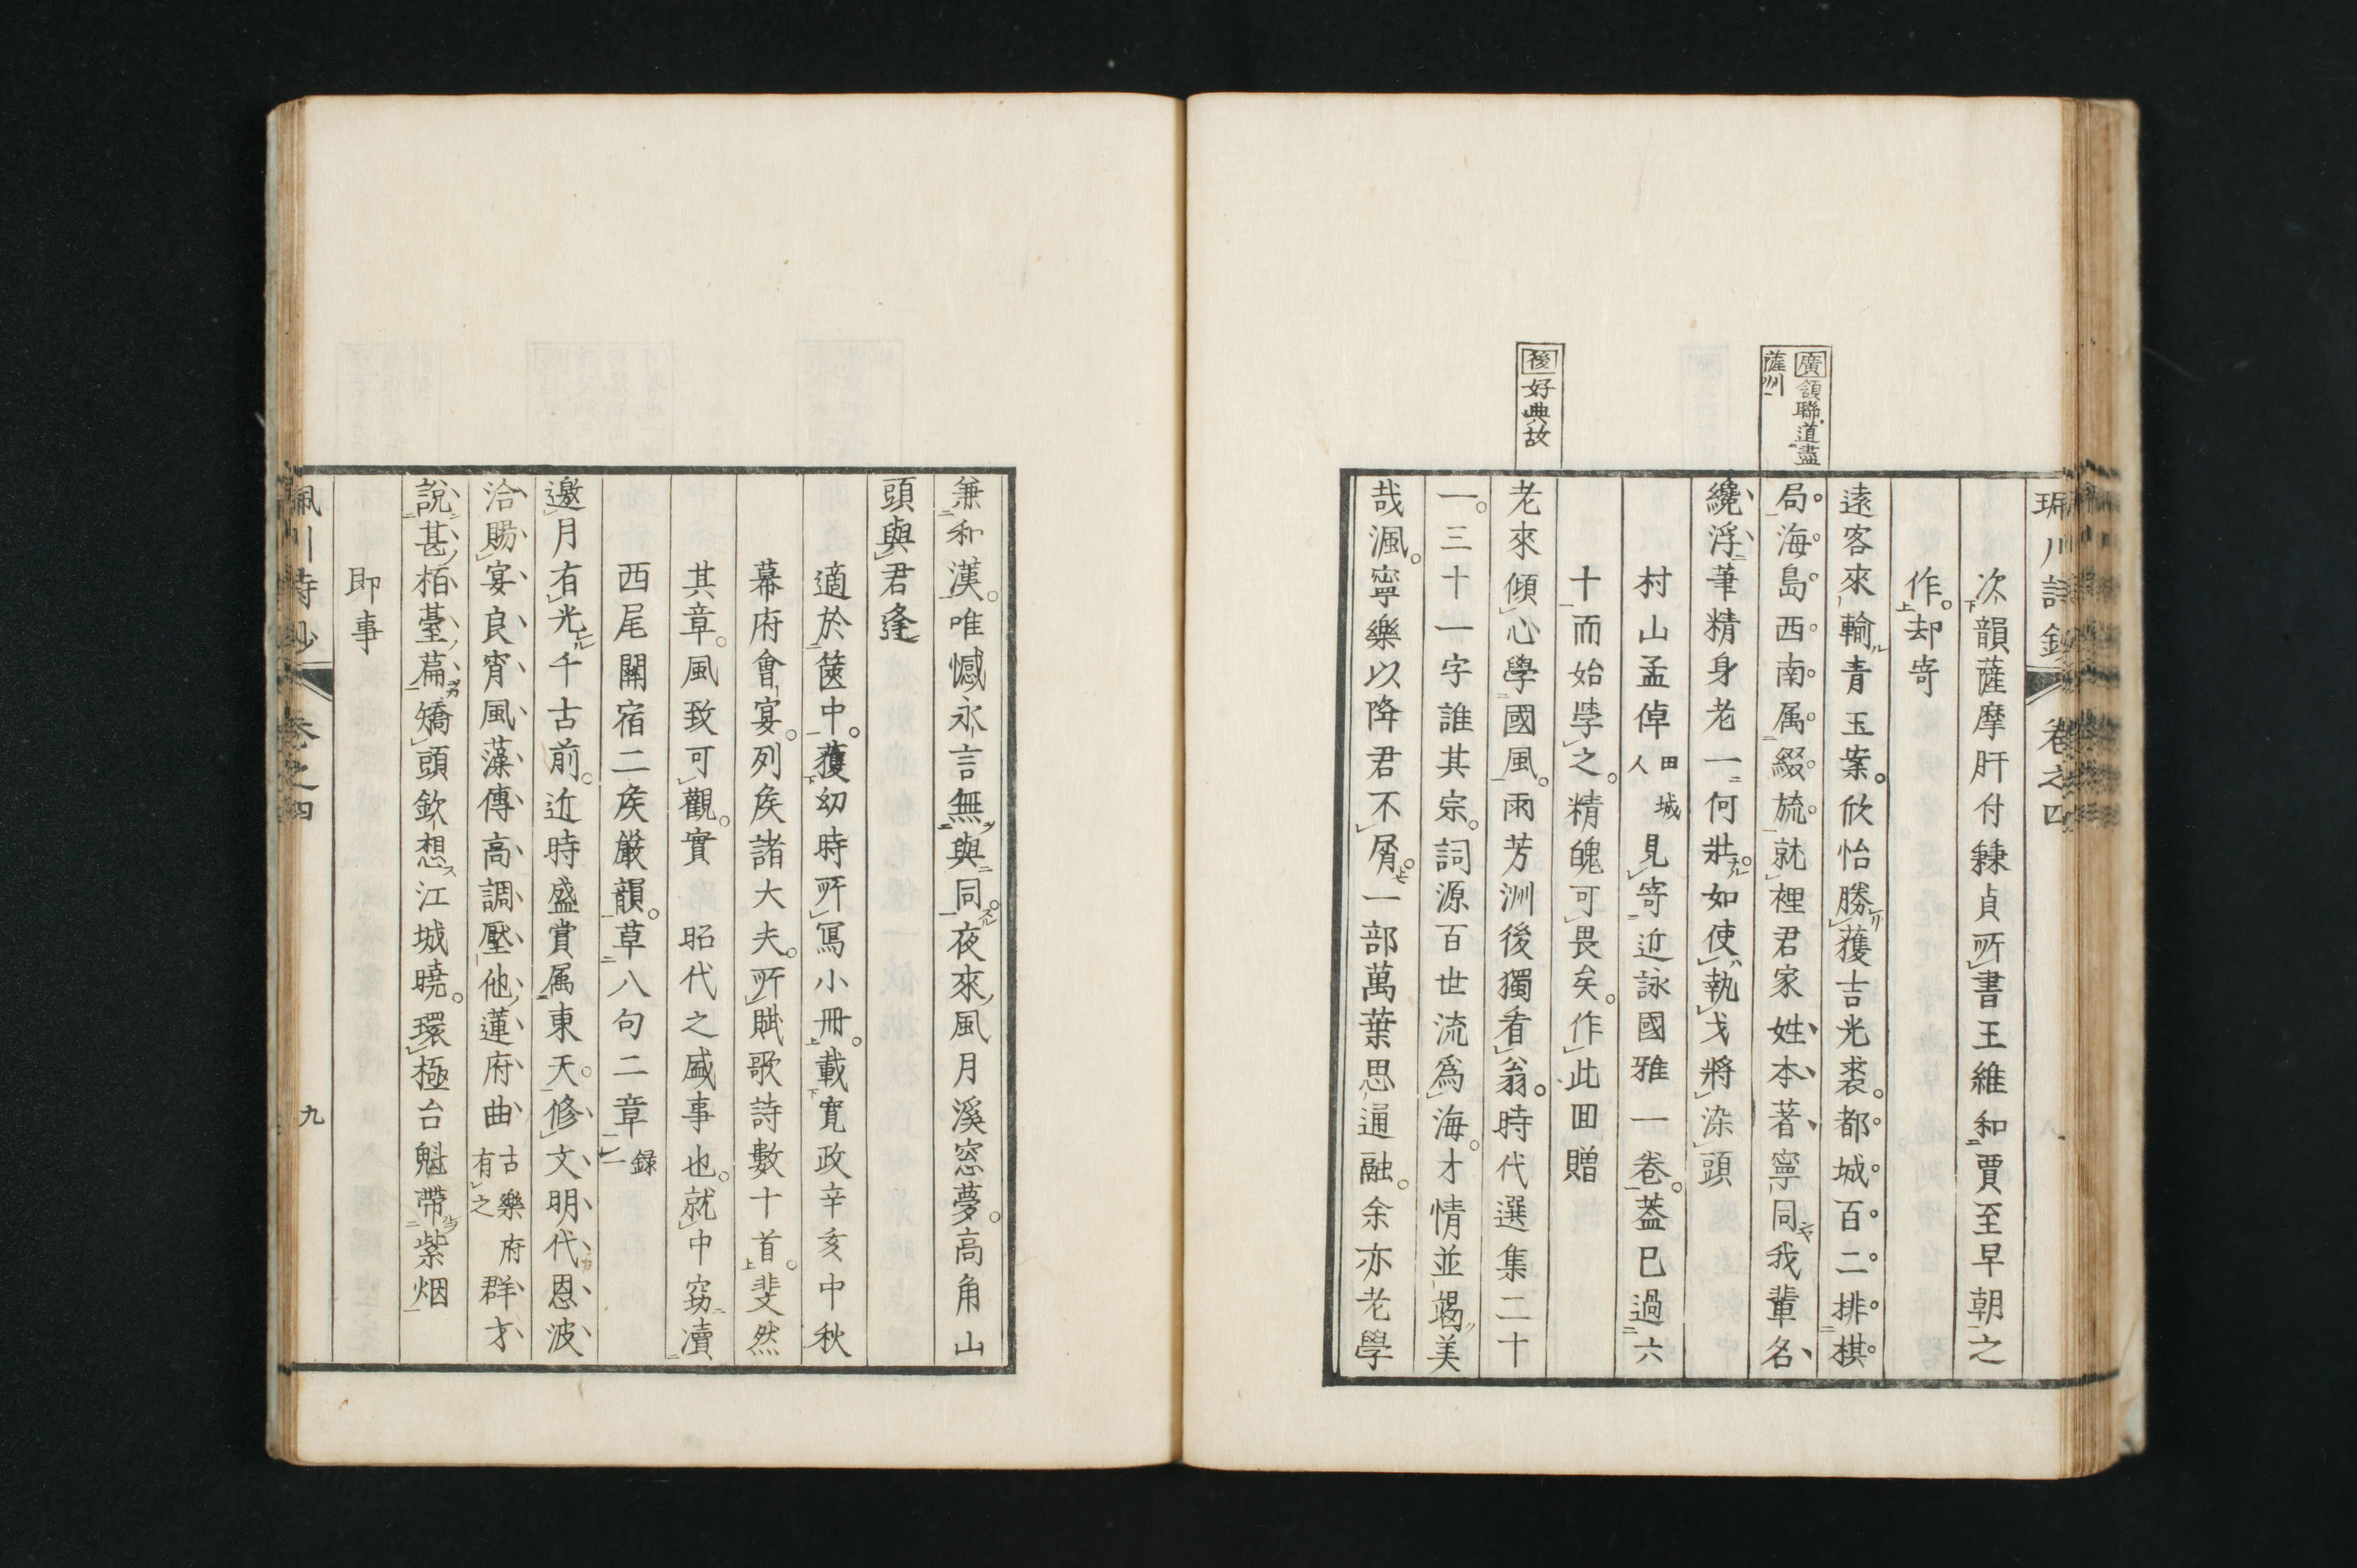 珮川詩鈔 卷之四
次韻薩摩肝付兼貞所書王維和賈至早朝之
作却寄
遠客來輸青玉案。欣怡勝獲吉光裘。都城百二排棋
局。海島西南属綴旒。就裡君家姓本著。寧同我輩名
纔浮。筆精身老一何壯。如使執戈將染頭
村山孟倬田城人見寄近詠國雅一卷。蓋已過六
十而始學之。精魄可畏矣。作此囬贈
老來傾心學國風。雨芳洲後獨看翁。時代選集二十
一。三十一字誰其宗。詞源百世流爲海。才情並竭美
哉渢。寧樂以降君不屑。一部萬葉思通融。余亦老學
廣 頷聯道盡
薩州
後 好典故
兼和漢。唯憾永言無與同。夜來風月溪窓夢。高角山
頭與君逢
適於篋中。獲幼時所寫小冊。載寛政辛亥中秋
幕府會宴。列矦諸大夫。所賦歌詩數十首。斐然
其章。風致可觀。實 昭代之盛事也。就中窃瀆
西尾關宿二矦嚴韻。草八句二章 録一
邀月有光千古前。近時盛賞属東天。修文明代恩波
洽。賜宴良宵風藻傳。高調壓他蓮府曲 古樂府有之 群才
說甚栢臺篇。矯頭欽想江城曉。環極台魁帶紫烟
即事
珮川詩鈔 卷之四 九